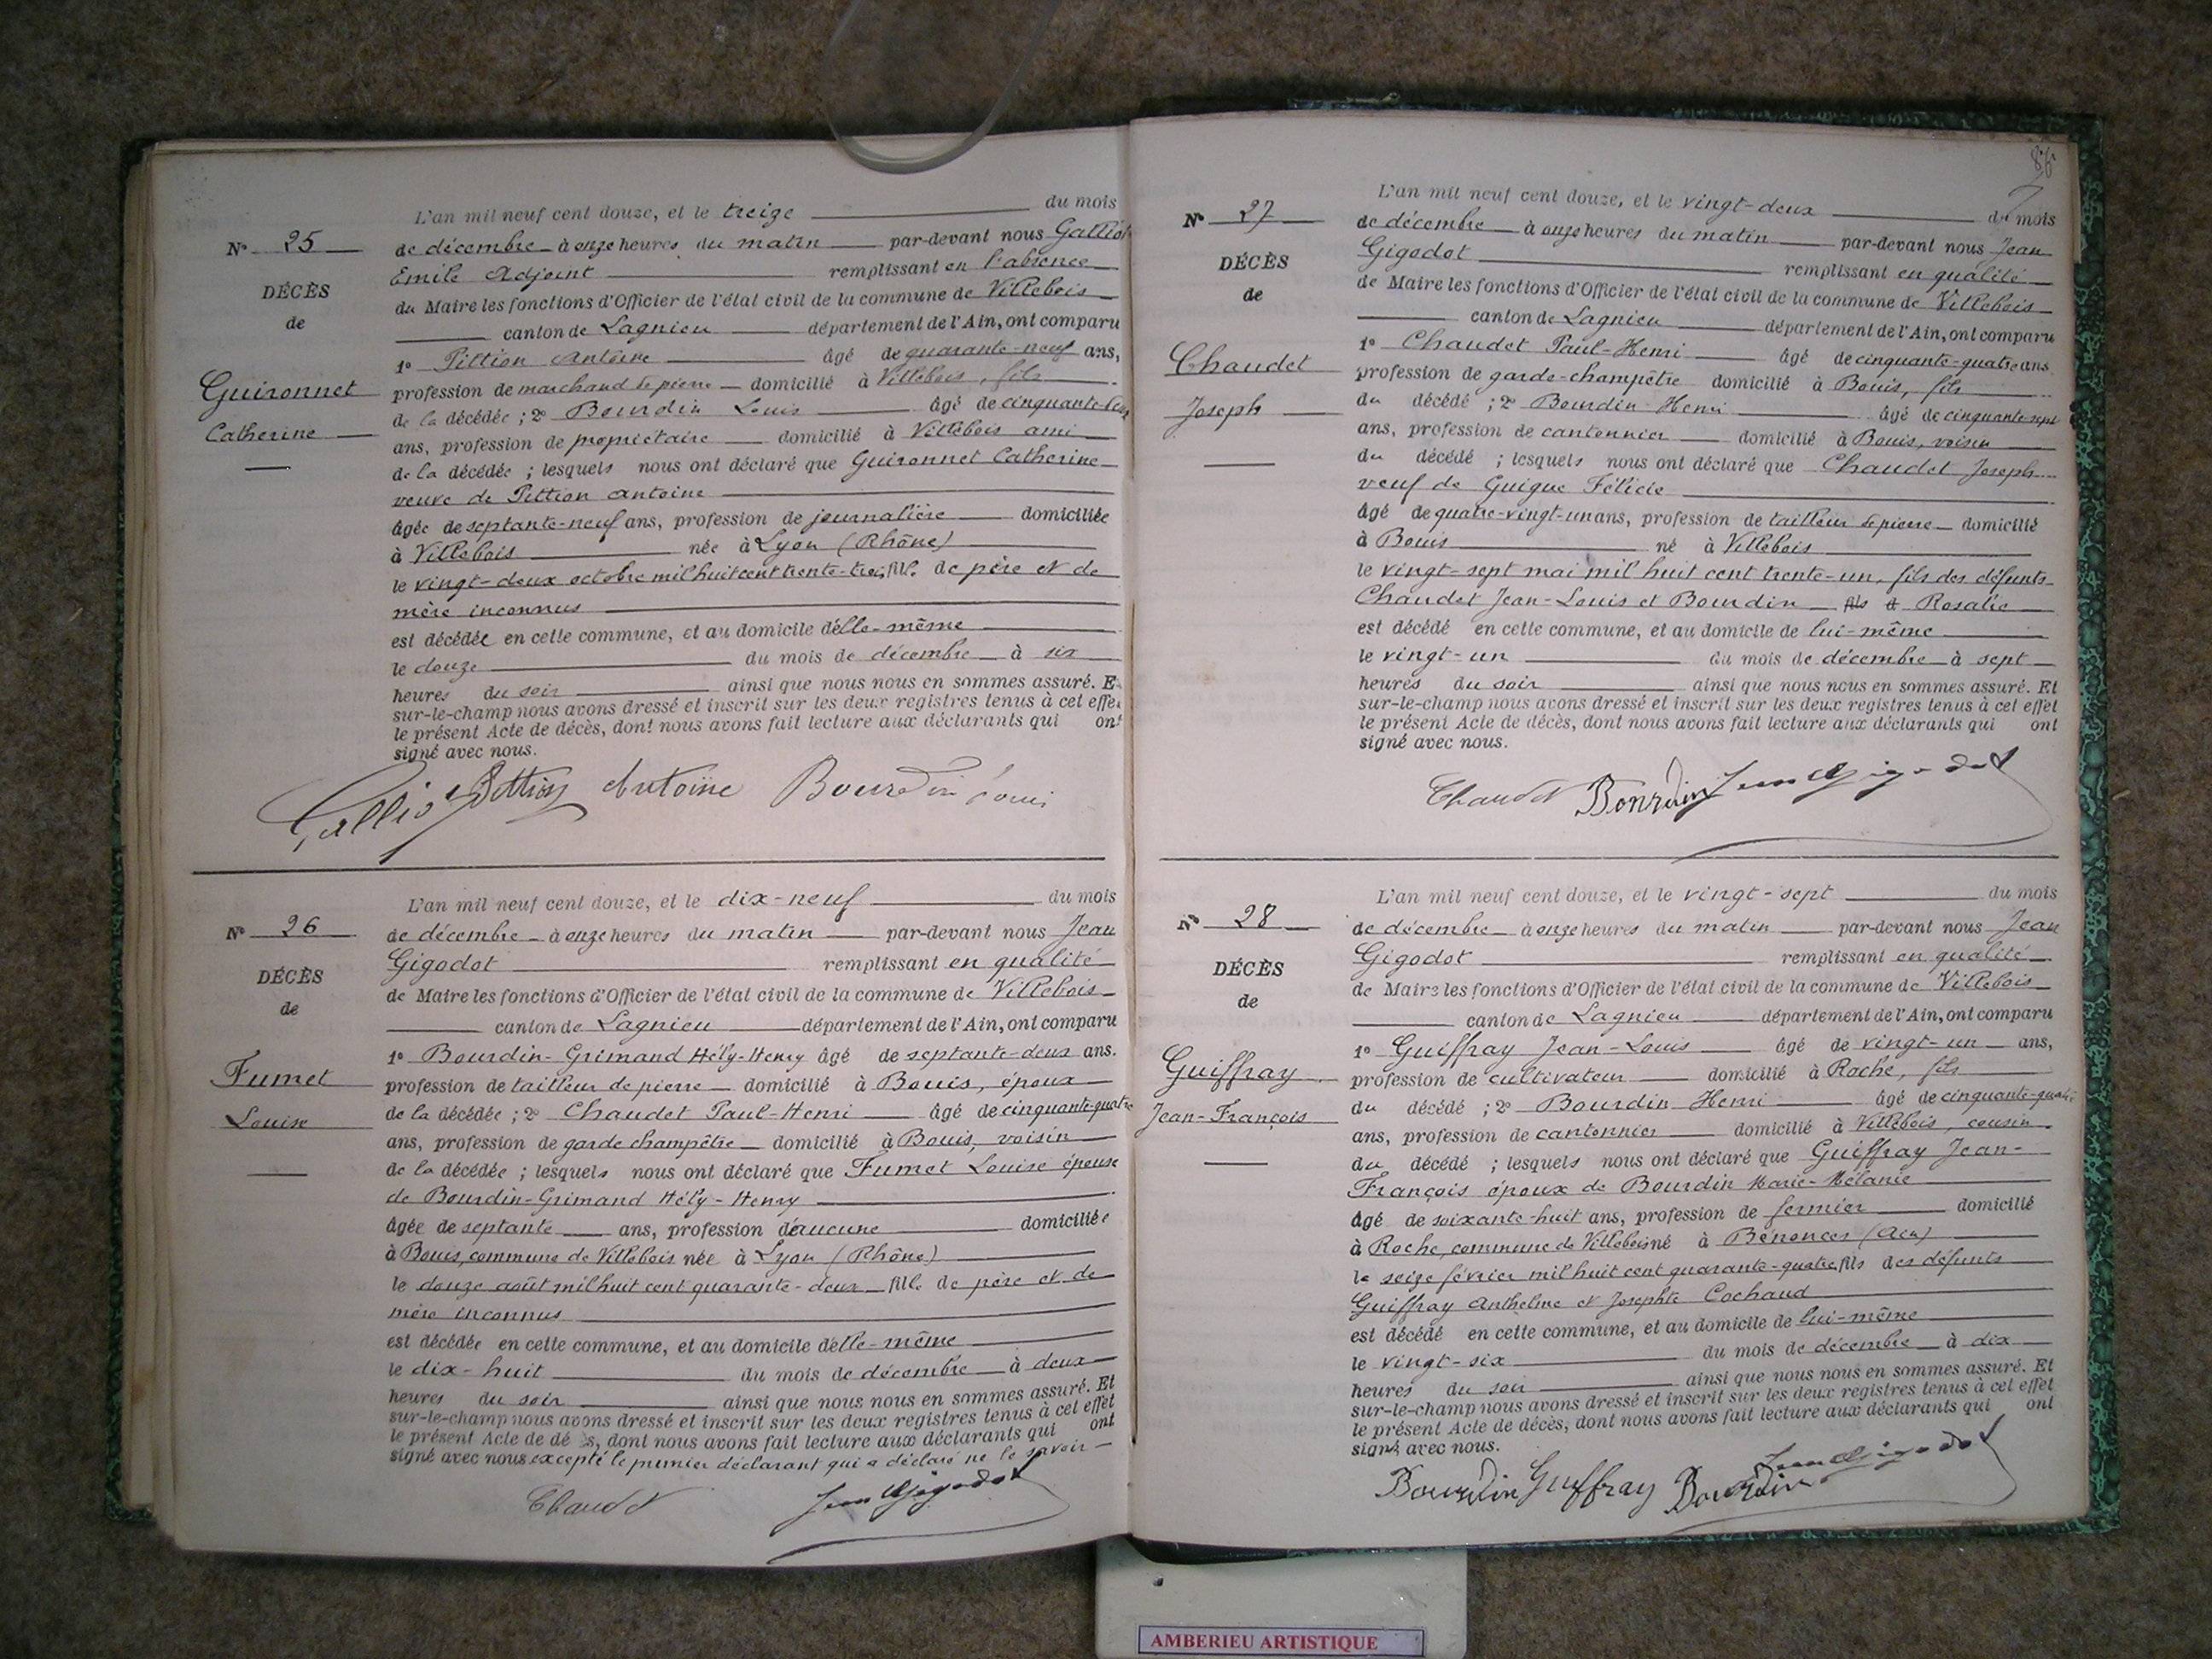 L'an mil neuf cent douze, et le treize du mois
N° 25
de décembre à onze heures du matin par-devant nous Galliot
Emile Adjoint remplissant en l'absence
DÉCÈS
du Maire les fonctions d'Officier de l'état civil de la commune de Villebois
de
canton de Lagnieu département de l'Ain, ont comparu
1° Pittion Antoine âgé de quarante-neuf ans,
Guironnet
profession de marchand de pierre domicilié à Villebois, fils
de la décédée ; 2° Bourdin Louis âgé de cinquante-
Catherine
ans, profession de propriétaire domicilié à Villebois ami
de la décédée ; lesquels nous ont déclaré que Guironnet Catherine
veuve de Pittion Antoine
âgée de septante-neuf ans, profession de journalière domiciliée
à Villebois née à Lyon (Rhône)
le vingt-deux octobre mil huit cent trente-trois, fille de père et de
mère inconnus
est décédée en cette commune, et au domicile d'elle-même
le douze du mois de décembre à six
heures du soir ainsi que nous nous en sommes assuré. Et
sur-le-champ nous avons dressé et inscrit sur les deux registres tenus à cet effet
le présent Acte de décès, dont nous avons fait lecture aux déclarants qui ont
signé avec nous.
Galliot Pittion Antoine Bourdin Louis
L'an mil neuf cent douze, et le dix-neuf du mois
N° 26
de décembre à onze heures du matin par-devant nous Jean
Gigodot remplissant en qualité
DÉCÈS
de Maire les fonctions d'Officier de l'état civil de la commune de Villebois
de
canton de Lagnieu département de l'Ain, ont comparu
1° Bourdin-Grimand Hély-Henry âgé de septante-deux ans.
Fumet
profession de tailleur de pierre domicilié à Bouis, époux
Louise
de la décédée ; 2° Chaudet Paul-Henri âgé de cinquante-quatre
ans, profession de garde champêtre domicilié à Bouis, voisin
de la décédée ; lesquels nous ont déclaré que Fumet Louise épouse
de Bourdin-Grimand Hély-Henry
âgée de septante ans, profession d'aucune domiciliée
à Bouis, commune de Villebois née à Lyon (Rhône)
le douze août mil huit cent quarante-deux fille de père et de
mère inconnus
est décédée en cette commune, et au domicile d'elle-même
le dix-huit du mois de décembre à deux
heures du soir ainsi que nous nous en sommes assuré. Et
sur-le-champ nous avons dressé et inscrit sur les deux registres tenus à cet effet
le présent Acte de dé s, dont nous avons fait lecture aux déclarants qui ont
signé avec nous excepté le premier déclarant qui a déclaré ne le savoir
Chaudet Jean Gigodot
86
L'an mil neuf cent douze, et le vingt-deux du mois
N° 27
de décembre à onze heures du matin par-devant nous Jean
Gigodot remplissant en qualité
DÉCÈS
de Maire les fonctions d'Officier de l'état civil de la commune de Villebois
de
canton de Lagnieu département de l'Ain, ont comparu
Chaudet
1° Chaudet Paul-Henri âgé de cinquante-quatre ans
profession de garde-champêtre domicilié à Bouis, fils
Joseph
du décédé ; 2° Bourdin Henri âgé de cinquante-sept
ans, profession de cantonnier domicilié à Bouis, voisin
du décédé ; lesquels nous ont déclaré que Chaudet Joseph
veuf de Guigue Félicie
âgé de quatre-vingt-un ans, profession de tailleur de pierre domicilié
à Bouis né à Villebois
le vingt-sept mai mil huit cent trente-un, fils des défunts
Chaudet Jean-Louis et Bourdin fils d Rosalie
est décédé en cette commune, et au domicile de lui-même
le vingt-un du mois de décembre à sept
heures du soir ainsi que nous nous en sommes assuré. Et
sur-le-champ nous avons dressé et inscrit sur les deux registres tenus à cet effet
le présent Acte de décès, dont nous avons fait lecture aux déclarants qui ont
signé avec nous.
Chaudet Bourdin Jean Gigodot
L'an mil neuf cent douze, et le vingt-sept du mois
N° 28
de décembre à onze heures du matin par-devant nous Jean
Gigodot remplissant en qualité
DÉCÈS
de Maire les fonctions d'Officier de l'état civil de la commune de Villebois
de
canton de Lagnieu département de l'Ain, ont comparu
1° Guiffray Jean-Louis âgé de vingt-un ans,
Guiffray
profession de cultivateur domicilié à Roche, fils
Jean-François
du décédé ; 2° Bourdin Henri âgé de cinquante-quatre
ans, profession de cantonnier domicilié à Villebois, cousin
du décédé ; lesquels nous ont déclaré que Guiffray Jean-
François époux de Bourdin Marie-Mélanie
âgé de soixante-huit ans, profession de fermier domicilié
à Roche, commune de Villebois né à Bénonces (Ain)
le seize février mil huit cent quarante-quatre fils des défunts
Guiffray Anthelme et Josephte Cochaud
est décédé en cette commune, et au domicile de lui-même
le vingt-six du mois de décembre à dix
heures du soir ainsi que nous nous en sommes assuré. Et
sur-le-champ nous avons dressé et inscrit sur les deux registres tenus à cet effet
le présent Acte de décès, dont nous avons fait lecture aux déclarants qui ont
signé avec nous.
Bourdin Guiffray Bourdin Jean Gigodot
AMBERIEU ARTISTIQUE